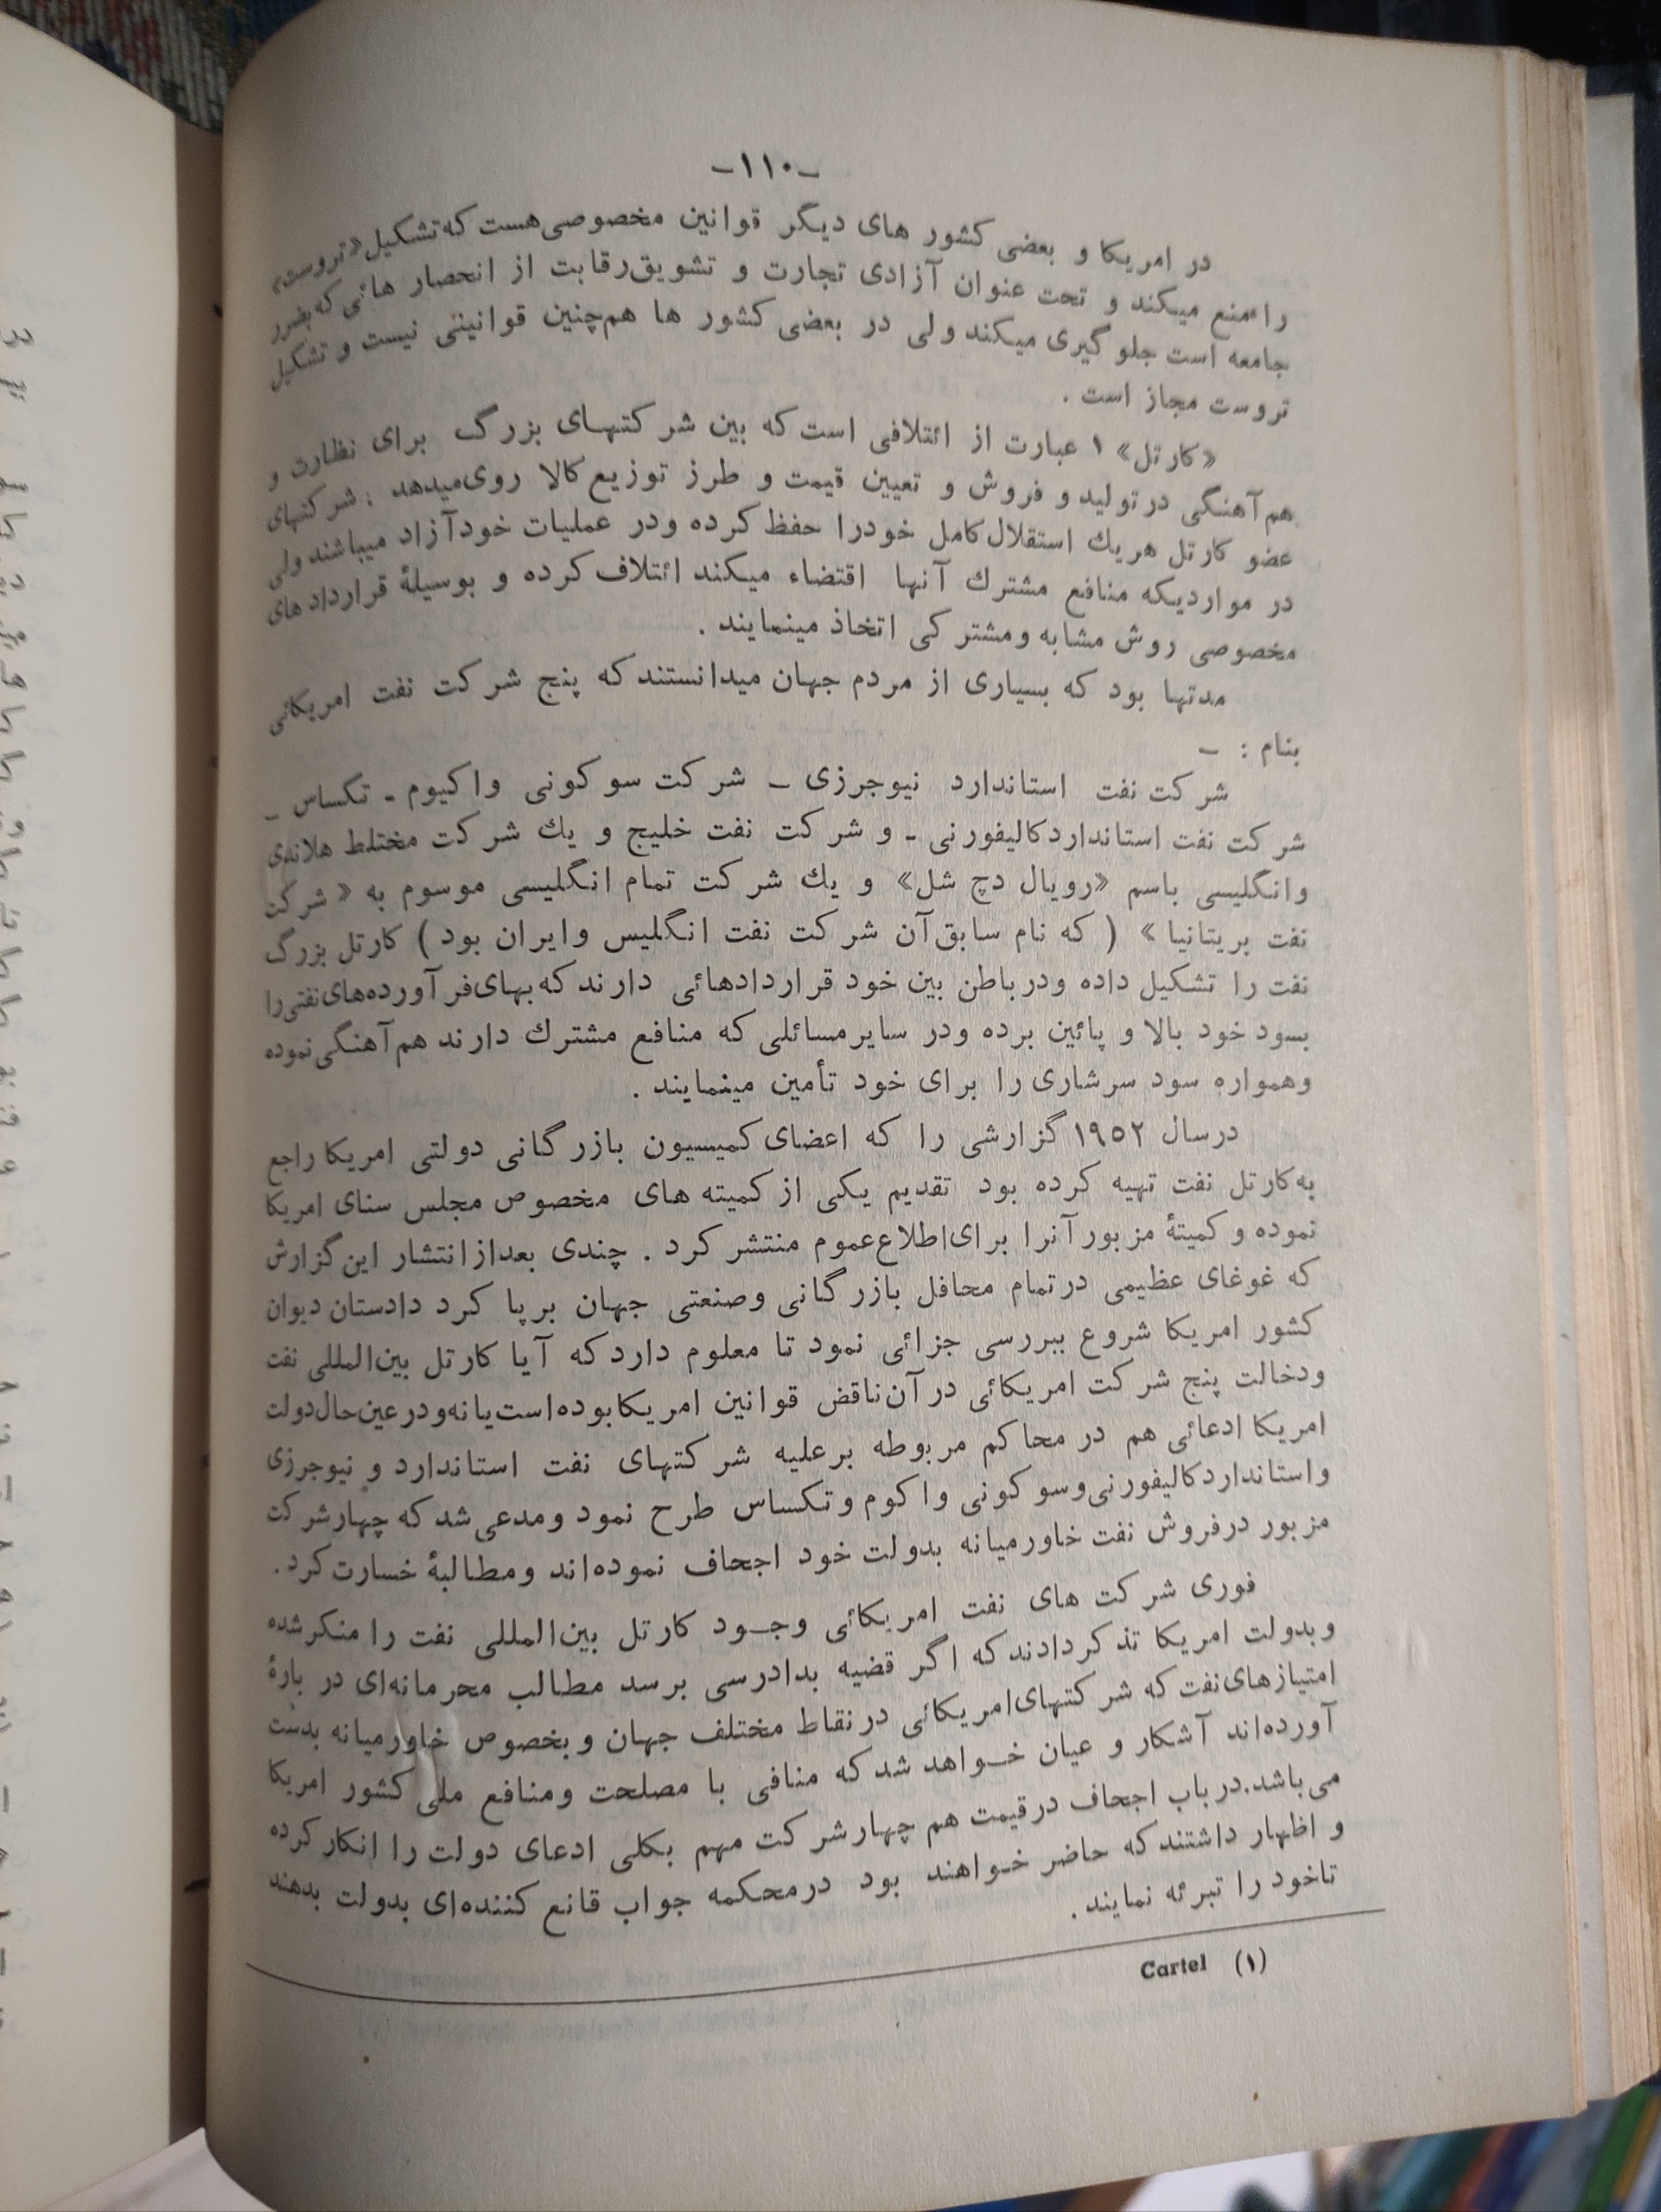 -۱۱۰-
در امریکا و بعضی کشور های دیگر قوانین مخصوصی هست که تشکیل «تروست»
را منع میکند و تحت عنوان آزادی تجارت و تشویق رقابت از انحصار هائی که بضرر
جامعه است جلو گیری میکند ولی در بعضی کشور ها هم‌چنین قوانینی نیست و تشکیل
تروست مجاز است .
«کارتل» ۱ عبارت از ائتلافی است که بین شرکتهای بزرگ برای نظارت و
هم‌آهنگی در تولید و فروش و تعیین قیمت و طرز توزیع کالا روی میدهد : شرکتهای
عضو کارتل هریك استقلال کامل خودرا حفظ کرده ودر عملیات خود آزاد میباشند ولی
در مواردیکه منافع مشترك آنها اقتضاء میکند ائتلاف کرده و بوسیلهٔ قرارداد های
مخصوصی روش مشابه ومشترکی اتخاذ مینمایند .
مدتها بود که بسیاری از مردم جهان میدانستند که پنج شرکت نفت امریکائی
بنام : -
شرکت نفت استاندارد نیوجرزی - شرکت سوکونی واکیوم - تکساس -
شرکت نفت استاندارد کالیفورنی - و شرکت نفت خلیج و یك شرکت مختلط هلاندی
وانگلیسی باسم «رویال دچ شل» و یك شرکت تمام انگلیسی موسوم به «شرکت
نفت بریتانیا» ( که نام سابق آن شرکت نفت انگلیس وایران بود ) کارتل بزرگ
نفت را تشکیل داده ودرباطن بین خود قراردادهائی دارند که بهای فرآورده‌های نفتی را
بسود خود بالا و پائین برده ودر سایر مسائلی که منافع مشترك دارند هم‌آهنگی نموده
وهمواره سود سرشاری را برای خود تأمین مینمایند .
درسال ۱۹۵۲ گزارشی را که اعضای کمیسیون بازرگانی دولتی امریکا راجع
به کارتل نفت تهیه کرده بود تقدیم یکی از کمیته های مخصوص مجلس سنای امریکا
نموده و کمیتهٔ مزبور آنرا برای اطلاع عموم منتشر کرد . چندی بعد از انتشار این گزارش
که غوغای عظیمی در تمام محافل بازرگانی وصنعتی جهان برپا کرد دادستان دیوان
کشور امریکا شروع ببررسی جزائی نمود تا معلوم دارد که آیا کارتل بین‌المللی نفت
ودخالت پنج شرکت امریکائی در آن ناقض قوانین امریکا بوده‌است یا نه و در عین حال دولت
امریکا ادعائی هم در محاکم مربوطه برعلیه شرکتهای نفت استاندارد و نیوجرزی
واستاندارد کالیفورنی و سوکونی واکوم و تکساس طرح نمود ومدعی شد که چهار شرکت
مزبور درفروش نفت خاورمیانه بدولت خود اجحاف نموده‌اند ومطالبهٔ خسارت کرد.
فوری شرکت های نفت امریکائی وجود کارتل بین‌المللی نفت را منکر شده
وبدولت امریکا تذکر دادند که اگر قضیه بدادرسی برسد مطالب محرمانه‌ای در بارهٔ
امتیازهای نفت که شرکتهای امریکائی در نقاط مختلف جهان و بخصوص خاورمیانه بدست
آورده‌اند آشکار و عیان خواهد شد که منافی با مصلحت ومنافع ملی کشور امریکا
می‌باشد. درباب اجحاف در قیمت هم چهار شرکت مهم بکلی ادعای دولت را انکار کرده
و اظهار داشتند که حاضر خواهند بود درمحکمه جواب قانع کننده‌ای بدولت بدهند
تاخود را تبرئه نمایند .
(۱) Cartel